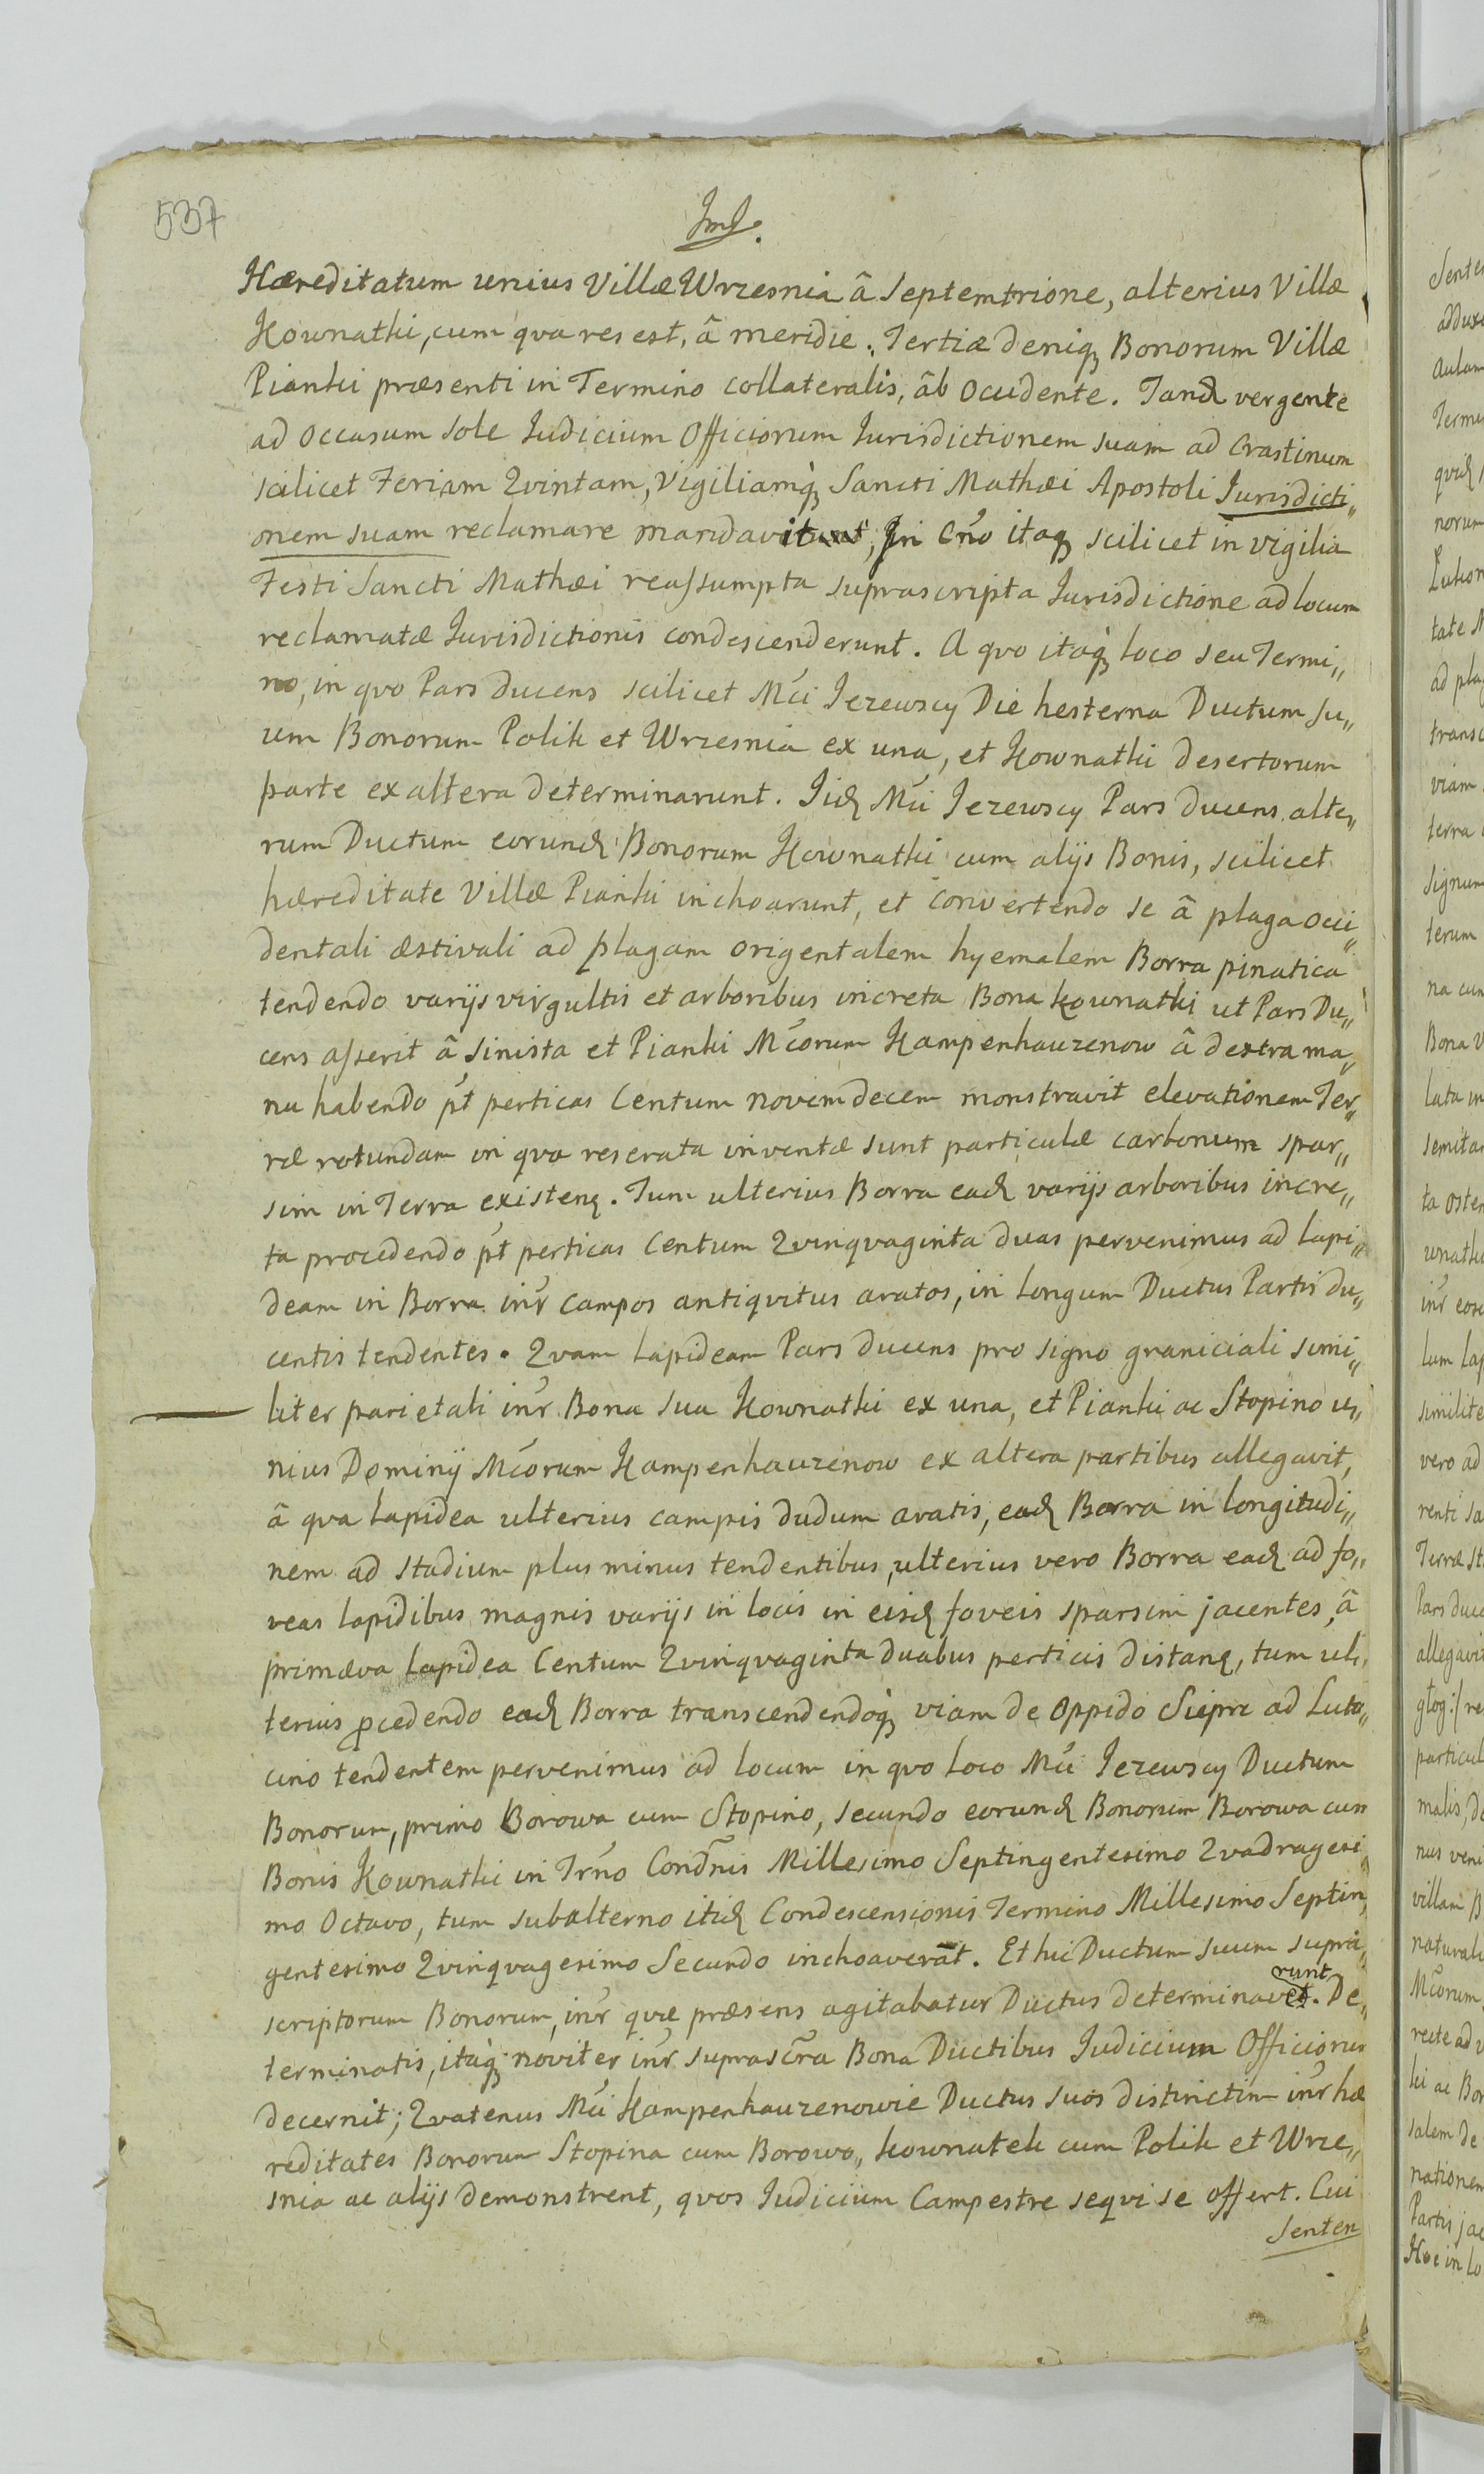 537
Haereditatum unius Villæ Wrzesnia â Septemtrione, alterius Villæ
Kownathi, cum qva res est, â meridie. Tertiæ deniq3 Bonorum Villæ
Pianki præsenti in Termino collateralis, âb Occidente. Tand vergente
ad Occasum Sole Iudicium Officiorum Iurisdictionem suam ad Crastinum
scilicet Feriam Qvintam, Vigiliamq3 Sancti Mathæi Apostoli Jurisdicti„
onem suam reclamare mandavit, In Crno itaq3 scilicet in vigilia
Festi Sancti Mathæi reassumpta suprascripta Iurisdictione ad locum
reclamatæ Iurisdictionis condescenderunt. A qvo itaq3 loco seu Termi„
no, in qvo Pars ducens scilicet Mci Jezewscy Die hesterna Ductum su„
um Bonorum Polik et Wrzesnia ex una, et Kownathi desertorum
parte ex altera determinarunt. Iid Mci Jezewscy Pars ducens alte„
rum Ductum eorund Bonorum Kownathi cum alijs Bonis, scilicet
hæreditate Villæ Pianki inchoarunt, et convertendo se â plaga occi„
dentali æstivali ad plagam origentalem hyemalem Borra pinatica
tendendo varijs virgultis et arboribus increta Bona Kownathi ut Pars Du„
cens asserit â sinista et Pianki Mcorum Kampenhauzenow â dextra ma„
nu habendo pt perticas Centum novemdecem monstravit elevationem Ter„
ræ rotundam in qva reserata inventæ sunt particulæ carbonum spar„
sim in Terra existen. Tum ulterius Borra ead varijs arboribus incre„
ta procedendo pt perticas Centum Qvinqvaginta duas pervenimus ad Lapi„
deam in Borra intr campos antiqvitus aratos, in longum Ductus Partis du„
centis tendentes. Qvam Lapideam Pars ducens pro signo graniciali simi„
liter parietali intr Bona sua Kownathi ex una, et Pianki ac Stopino u„
nius Dominij Mcorum Kampenhauzenow ex altera partibus allegavit,
â qva Lapidea ulterius campis dudum aratis, ead Borra in longitudi„
nem ad stadium plus minus tendentibus, ulterius vero Borra ead ad fo„
veas lapidibus magnis varijs in locis in eisd foveis sparsim jacentes, â
primæva Lapidea Centum Qvinqvaginta duabus perticis distan, tum ul„
terius pcedendo ead Borra transcendendoq3 viam de Oppido Siepre ad Luto„
cino tendentem pervenimus ad locum in qvo loco Mci Jezewscy Ductum
Bonorum, primo Borowa cum Stopino, secundo eorund Bonorum Borowa cum
Bonis Kownathi in Trno Condnis Millesimo Septingentesimo Qvadragesi„
mo Octavo, tum subalterno itid Condescensionis Termino Millesimo Septin„
gentesimo Qvinqvagesimo Secundo inchoaverāt. Et hic Ductum suum supra„
scriptorum Bonorum, intr quæ præsens agitabatur Ductus determinaverunt. De„
terminatis, itaq3 noviter intr suprascra Bona Ductibus Iudicium Officioru
decernit; Qvatenus Mci Kampenhauzenowie Ductus suos distinctim intr hæ
reditates Bonorum Stopina cum Borowo„ Kownatek cum Polik et Wrze„
snia ac alijs demonstrent, quos Iudicium Campestre seqvi se offert. Cui
Senten